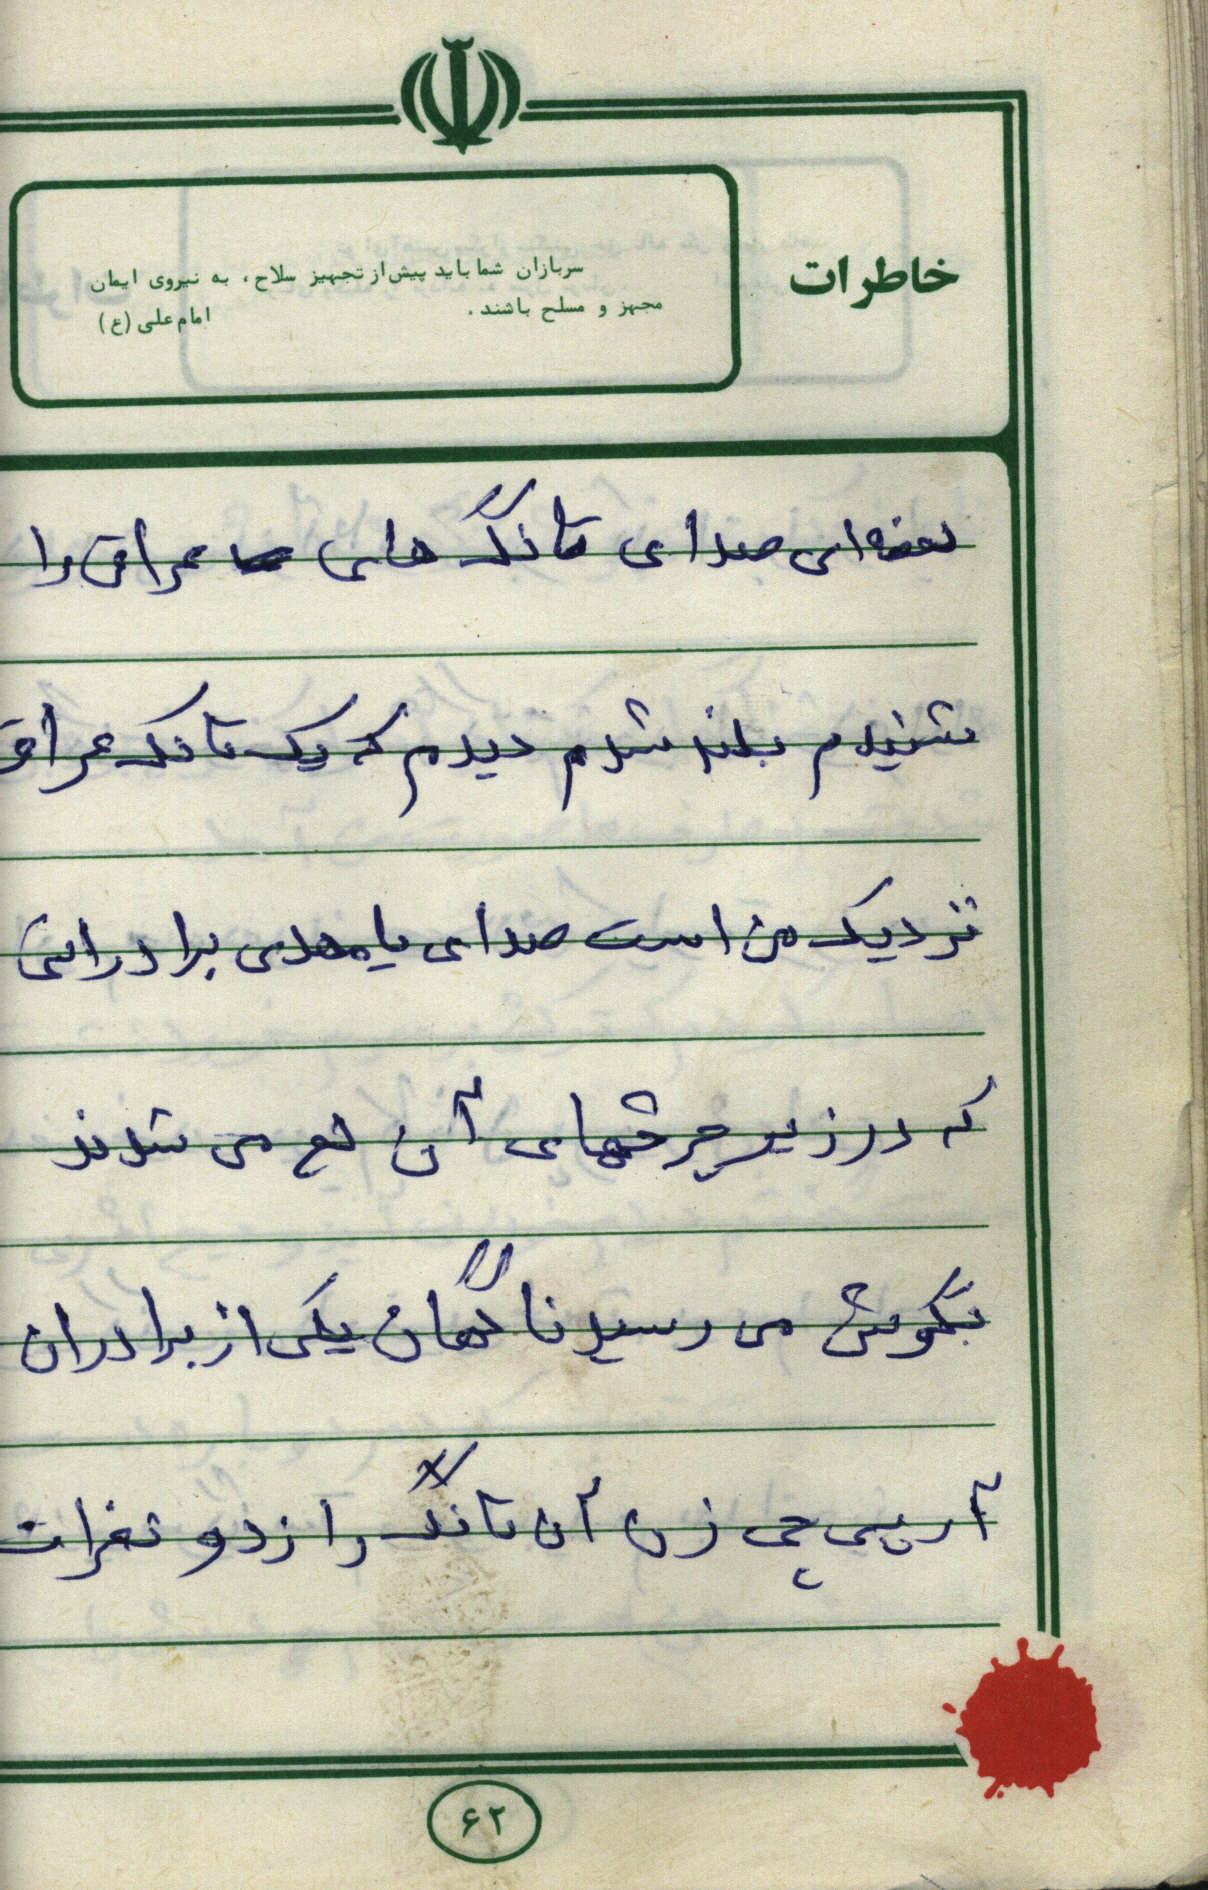 خاطرات
سربازان شما باید پیش از تجهیز سلاح، به نیروی ایمان
مجهز و مسلح باشند.
امام علی (ع)
صدای تانگ هایی عراق را
شنیدم بلند شدم دیدم که یک تانک عراق
نزدیک من است صدای یا مهدی برادرانی
که در زیر چرخهای آن له می شدند
بگوش می رسید ناگهان یکی از برادران
آر پی جی زن آن تانگ را زد و نفرات
۶۲